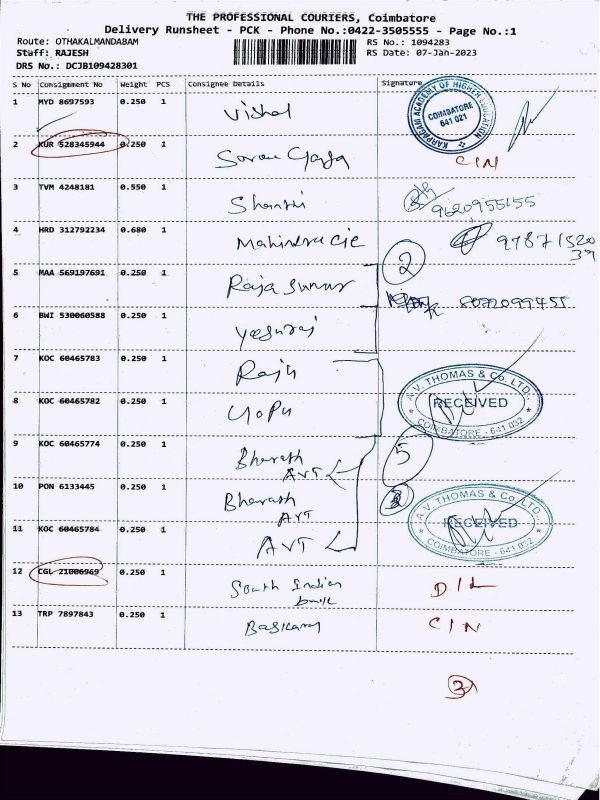 THE PROFESSIONAL COURIERS, Coimbatore
Delivery Runsheet - PCK - Phone No.:0422-3505555 - Page No.:1
Route: OTHAKALMANDABAM RS No.: 1094283
Staff: RAJESH RS Date: 07-Jan-2023
DRS No.: DCJB109428301
S No Consignment No Weight PCS Consignee Details Signature
1 MYD 8697593 0.250 1 Vishal
KARPAGAM ACADEMY OF HIGHER EDUCATION COIMBATORE 641 021
2 KUR 528345944 0.250 1 CIN
3 TVM 4248181 0.550 1 Shanthi 9620955155
4 HRD 312792234 0.680 1 Mahindra CIE 97871520
39
2
5 MAA 569197691 0.250 1 Raja Sunur
6 BWI 530060588 0.250 1 Yesuraj 8072099455
7 KOC 60465783 0.250 1 Raju
A.V. THOMAS & Co. LTD. RECEIVED COIMBATORE - 641 032
8 KOC 60465782 0.250 1 Gopu
9 KOC 60465774 0.250 1 Bharath
AVT
5
10 PON 6133445 0.250 1 Bharath
AVT
A.V. THOMAS & Co. LTD. RECEIVED COIMBATORE - 641 032
11 KOC 60465784 0.250 1 AVT
12 CGL 21006969 0.250 1 South Indian
bank
D/L
13 TRP 7897843 0.250 1 Baskaran CIN
3